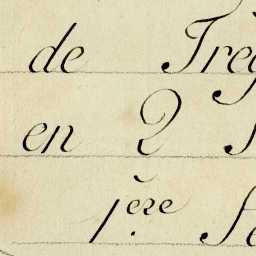 de Trég
en 2 
1.ère Fe